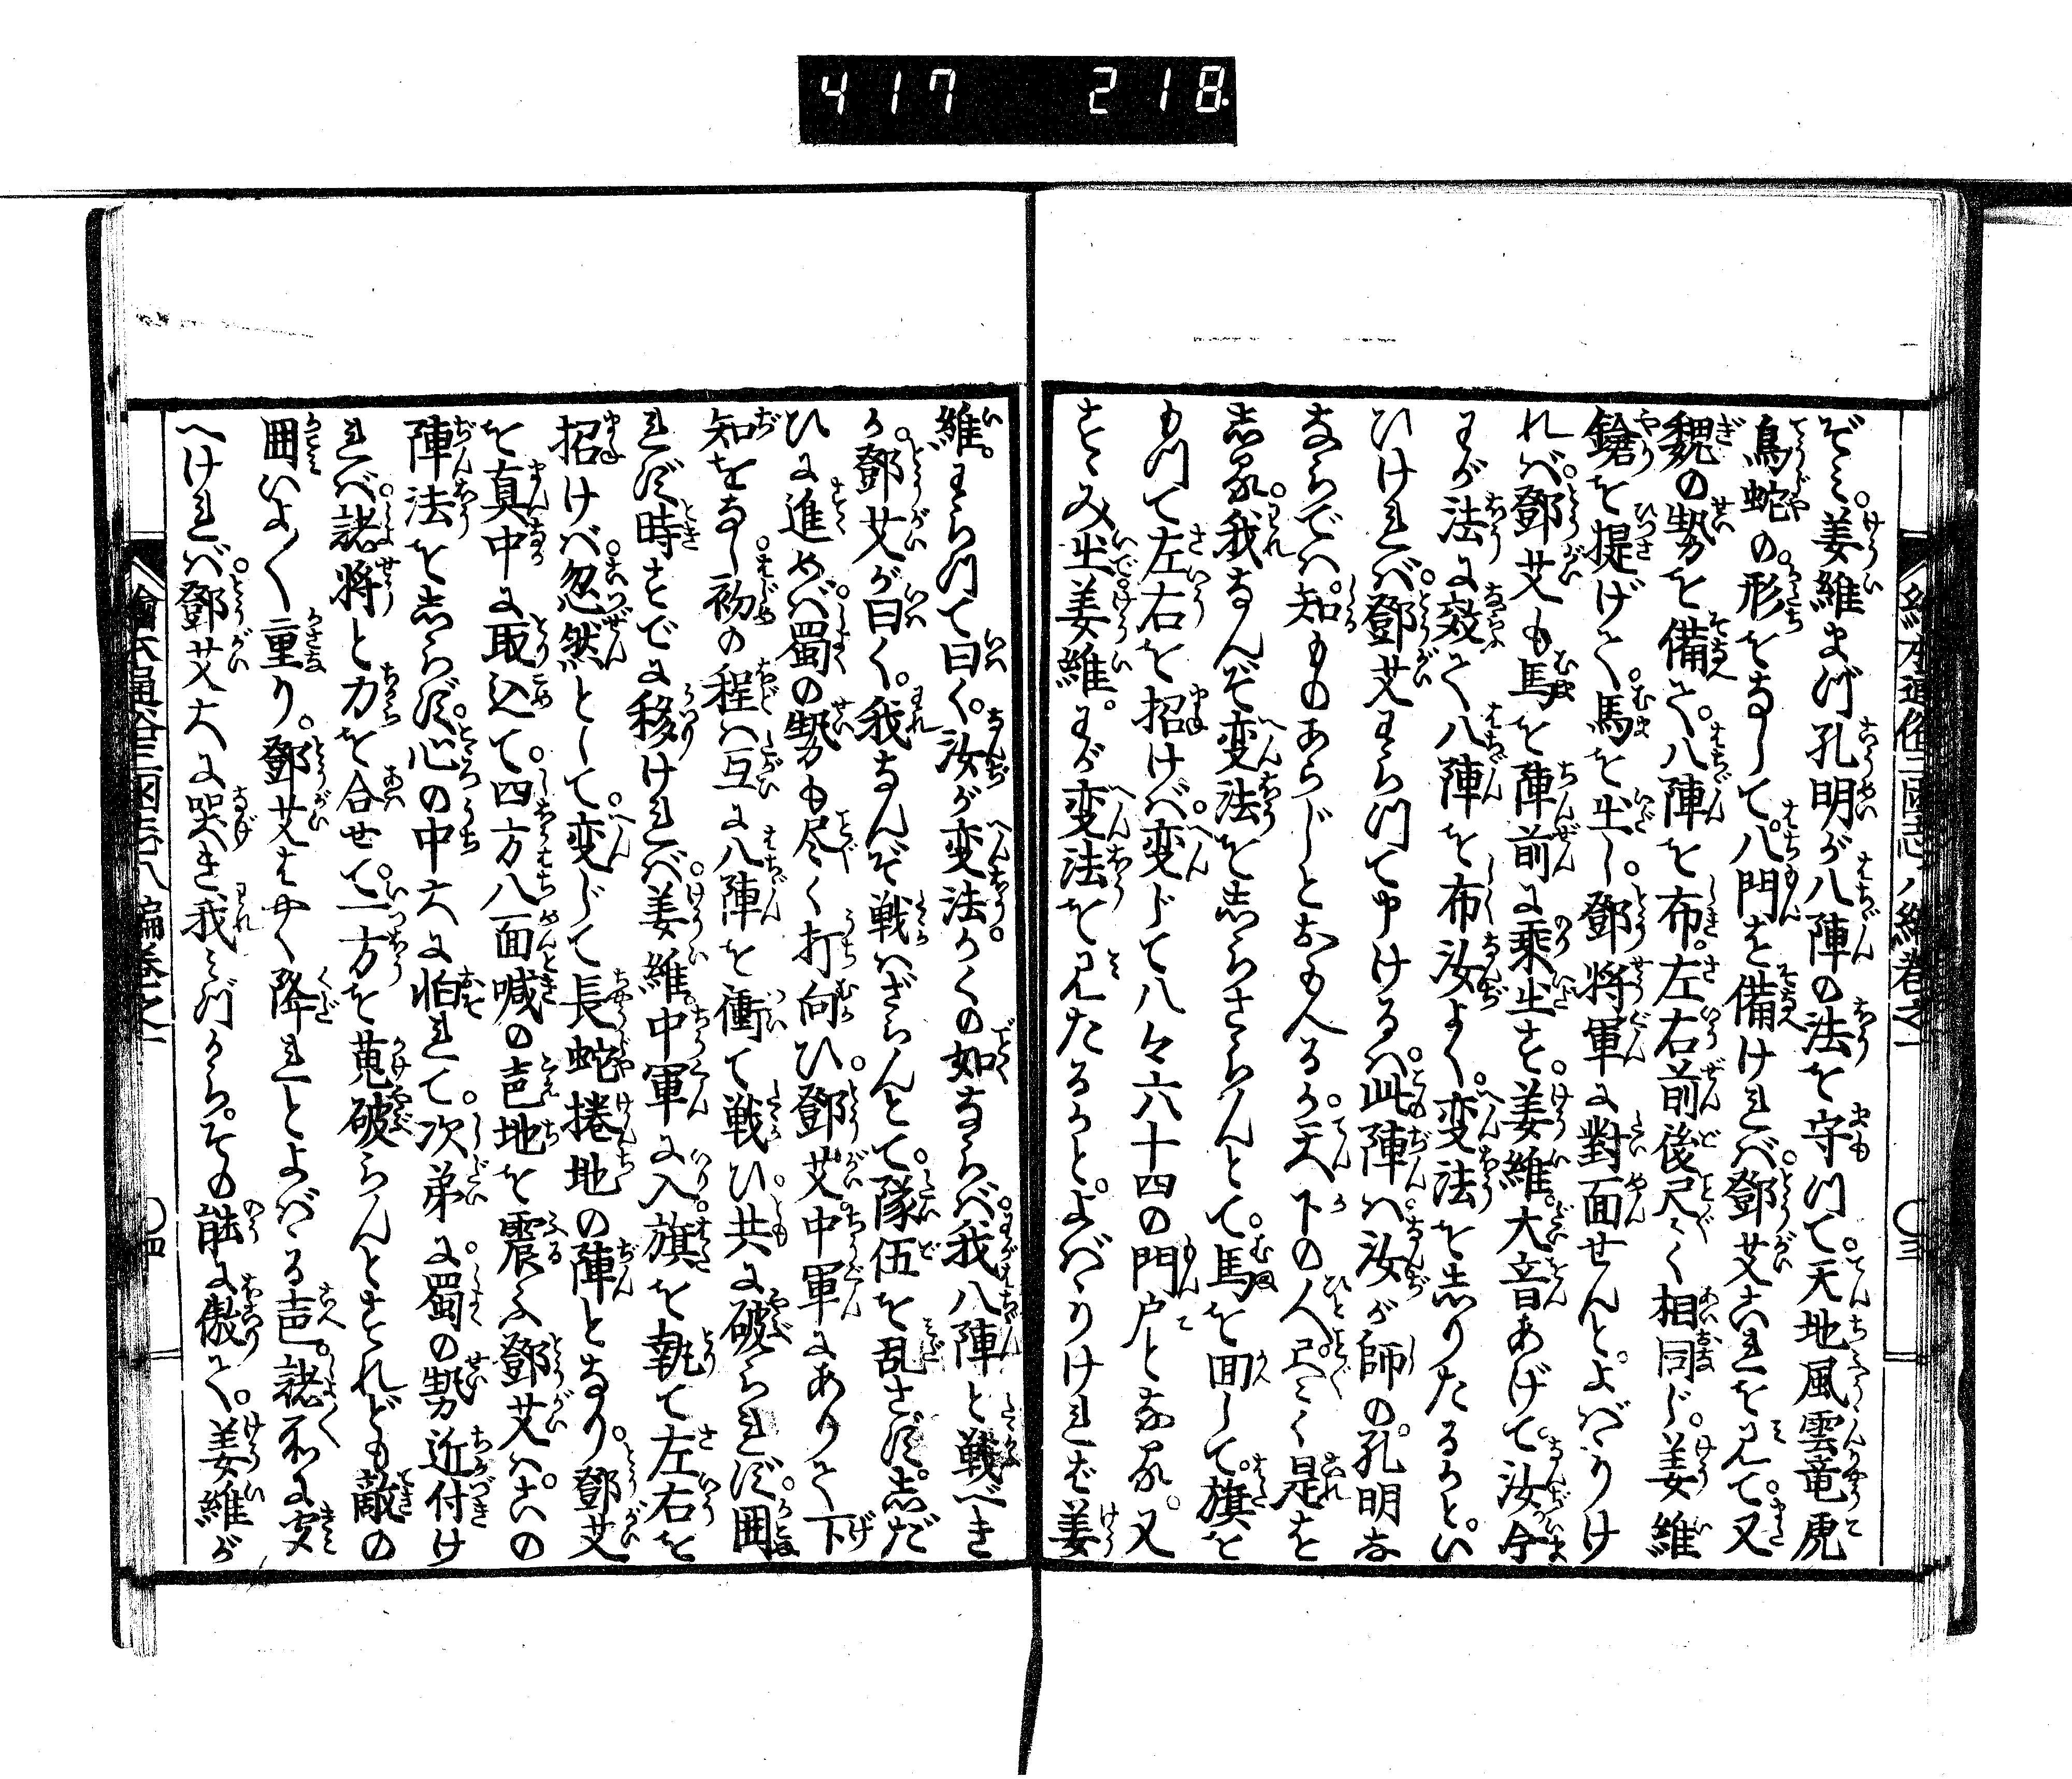 417 218
ぞミ。姜維まづ孔明が八陣の法を守つて。天地風雲竜虎
鳥蛇の形をなして。八門を備けれバ。鄧艾これを見て。又
魏の勢を備へ。八陣を布。左右前後尽く相同じ。姜維
鎗を提げて。馬を出し。鄧将軍に對面せんと。よばゝりけ
れバ。鄧艾も馬を陣前に乗出す。姜維。大音あげて。汝今
わが法に效て八陣を布。汝よく変法を志りたるかと。い
ひけれバ。鄧艾わらつて申けるハ。此陣ハ汝が師の。孔明な
らでハ。知ものあらじとおもへるか。天下の人。尽く是を
志る。我なんぞ変法を志らさらんとて。馬を回して。旗を
もつて左右を招けバ。変じて八々六十四の門戸となる。又
すゝみ出。姜維。わが変法を見たるかと。よばゝりけれバ。姜
維。わらつて曰く。汝が変法。かくの如ならバ。我八陣と戦べき
か。鄧艾が曰く。我なんぞ戦ハざらんとて。隊伍を乱さず。志だ
ひに進めバ。蜀の勢も尽く打向ひ。鄧艾。中軍にありて下
知をなし。初の程ハ互に八陣を衝て戦ひ。共に破られず。囲
れず。時すでに移けれバ。姜維。中軍に入。旗を執て左右を
招けバ。忽然として。変じて長蛇捲地の陣となり。鄧艾
を真中に取込て。四方八面喊の声地を震ふ。鄧艾ハこの
陣法を志らず。心の中大に怕れて。次弟に。蜀の勢近付け
れバ。諸将と力を合せて。一方を蒐破らんとすれども。敵の
囲いよ〱重り。鄧艾はやく降れとよバゝる声。諸
へけれバ。鄧艾大に哭き我ミづから。その能に傲て。姜維が